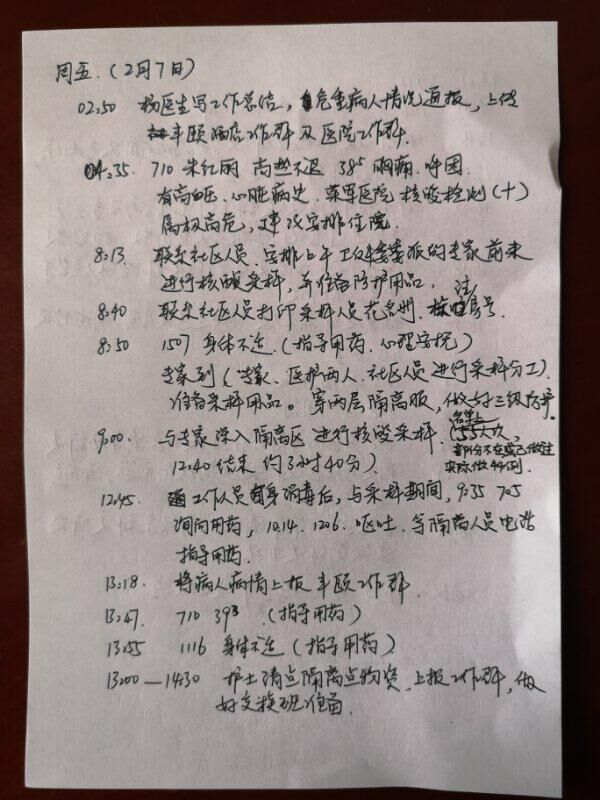 周五.(2月7日)
02:50 杨医生写工作总结,危重病人情况通报,上传
丰颐酒店工作群及医院工作群.
04:35. 710 朱红丽 高热不退 38⁵ 胸痛.呼困.
有高血压.心脏病史.荣军医院核酸检测(+)
属极高危,建议安排住院.
8:13 联系社区人员.安排上午卫健委委派的专家前来
进行核酸采样,并准备防护用品.
8:40 联系社区人员打印采样人员花名册.标注房号
8:50 1507 身体不适.(指导用药.心理安抚)
专家到(专家、医护两人.社区人员进行采样分工).
准备采样用品。穿两层隔离服,做好三级防护。
9:00 与专家深入隔离区进行核酸采样.(名单上55人次,
部分不在或已做过
实际做44例.
12:40结束 约3小时40分).
12:45 工作人员自身消毒后,与采样期间,9:35 705
询问用药,10:14. 1206.呕吐.等隔离人员电话
指导用药.
13:18. 将病人病情上报丰颐工作群.
13:47. 710 39³ (指导用药)
13:55 1116 身体不适(指导用药)
13:00—14:30 护士清点隔离点物资.上报工作群,做
好交接班准备.